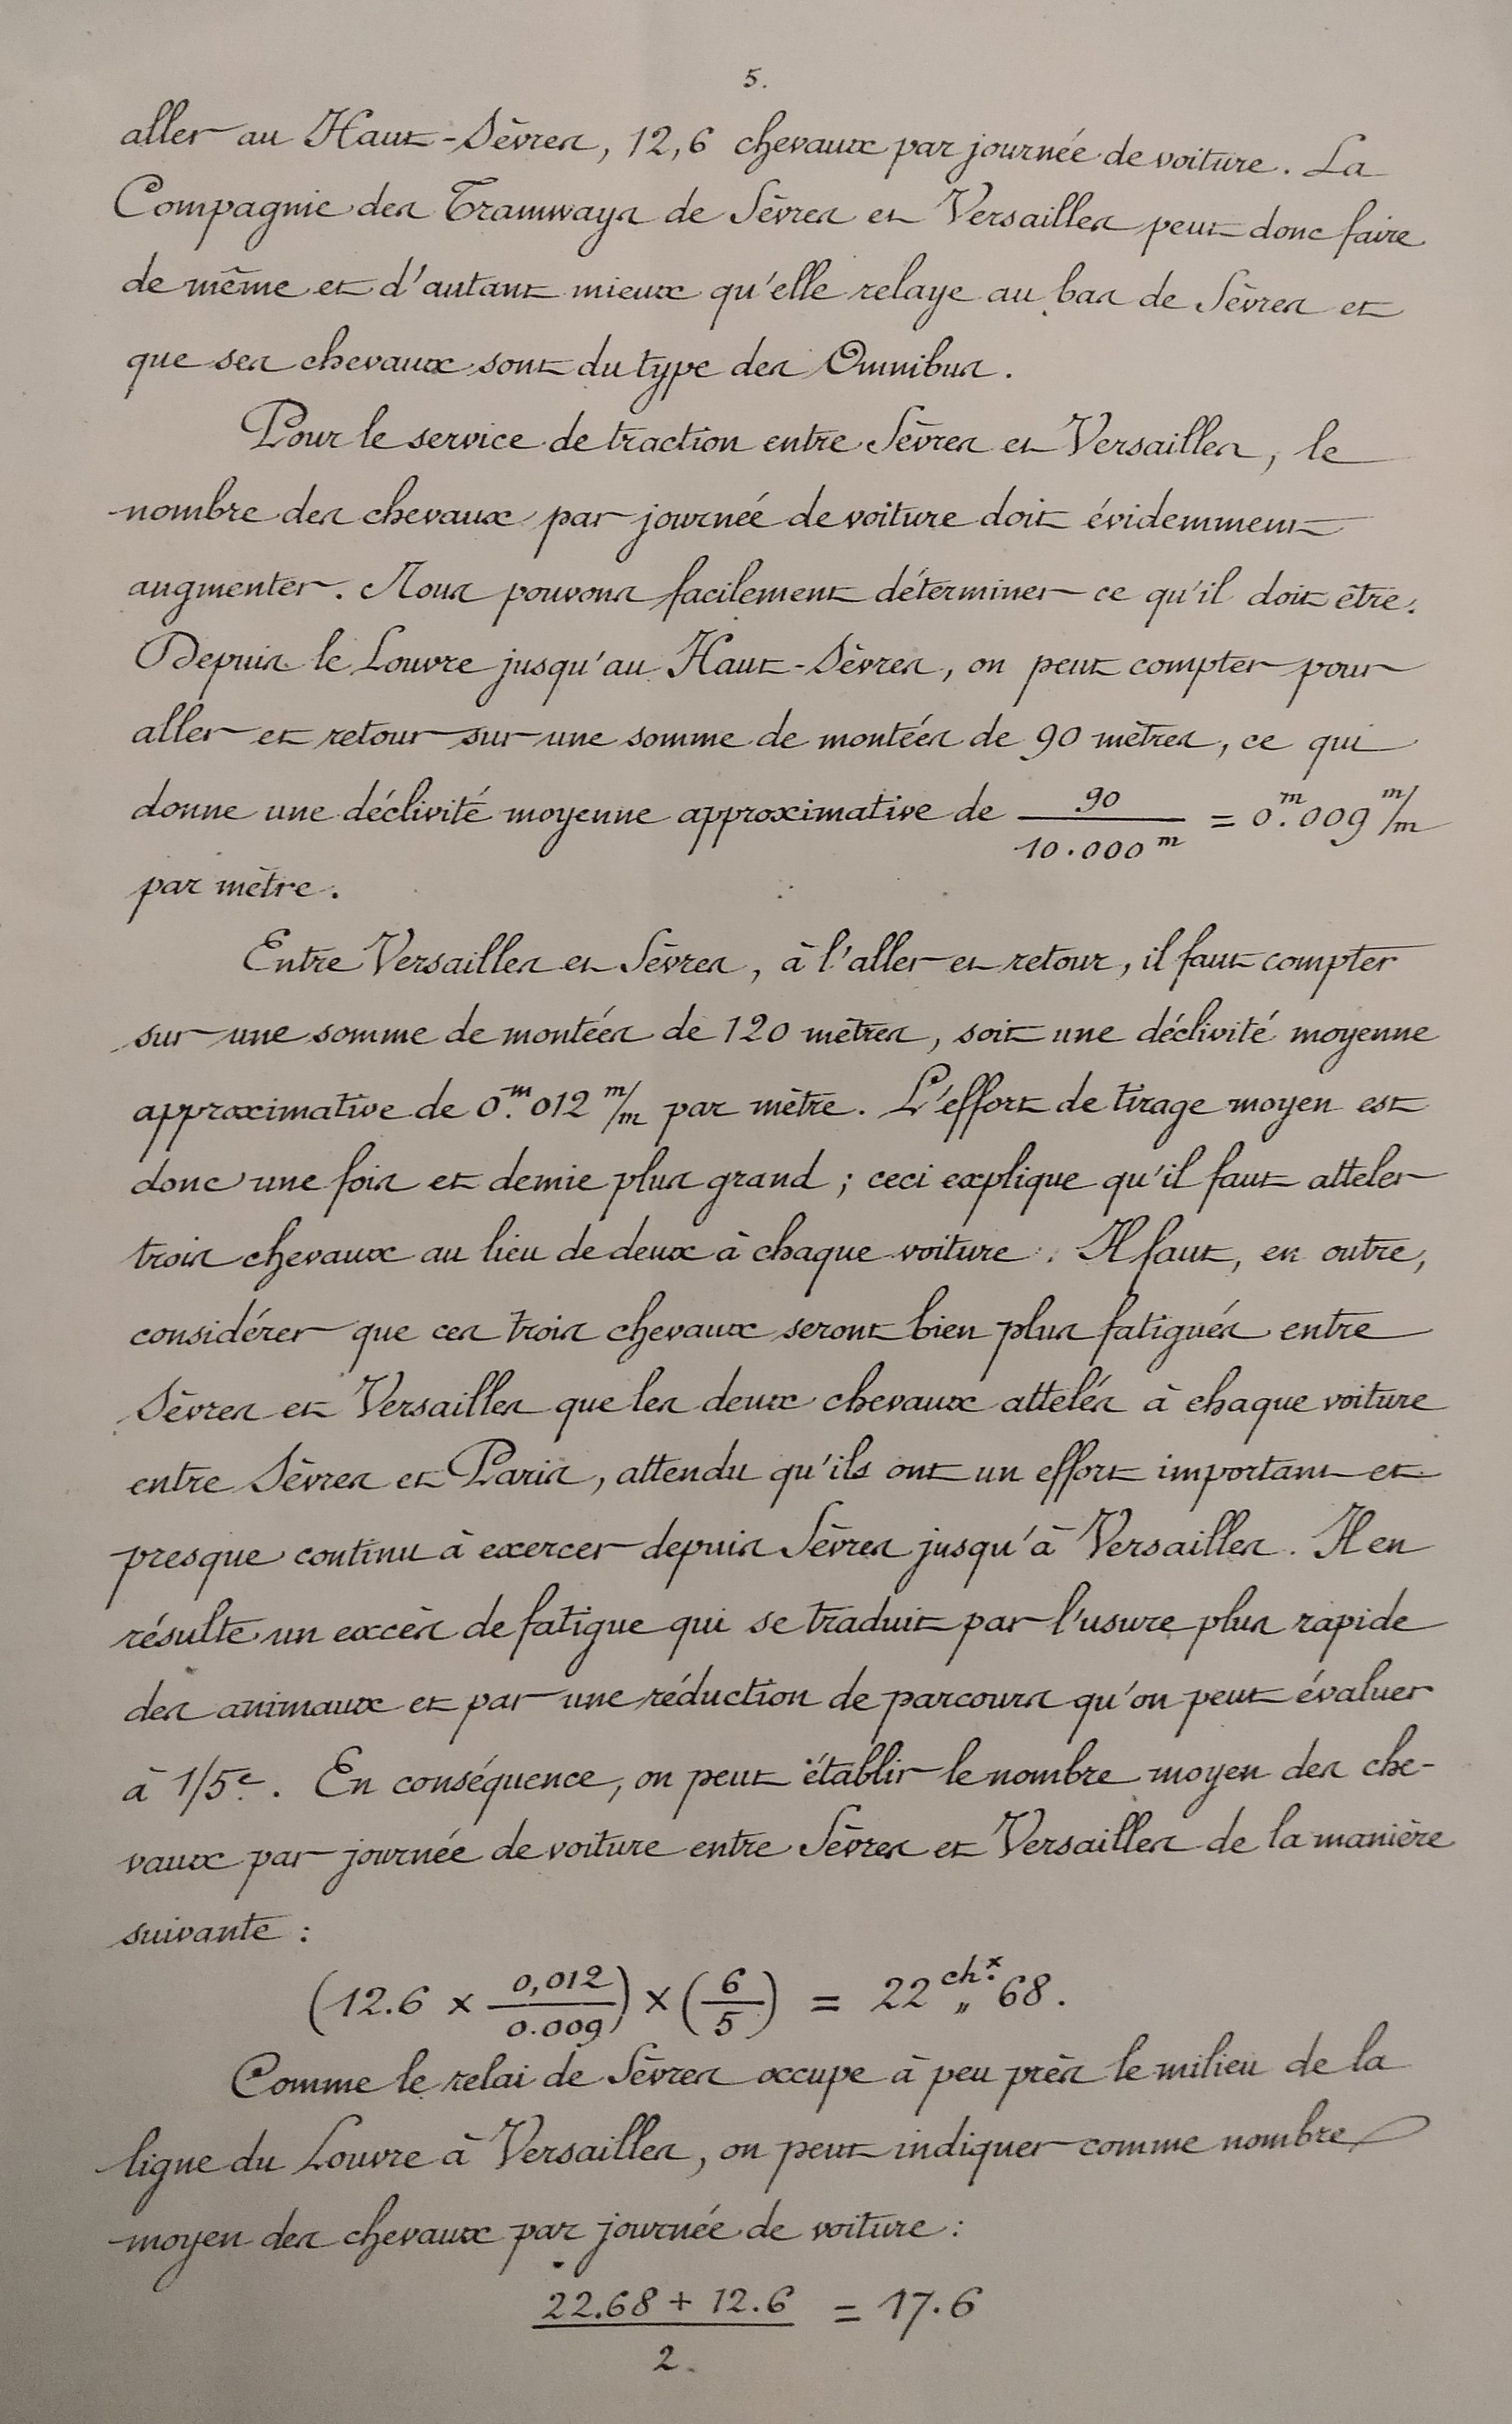 5.
aller au Haut-Sèvres, 12,6 chevaux par journée de voiture. La
Compagnie des Tramways de Sèvres et Versailles peut donc faire
de même et d'autant mieux qu'elle relaye au bas de Sèvres et
que ses chevaux sont du type des Omnibus.
Pour le service de traction entre Sèvres et Versailles, le
nombre des chevaux par journée de voiture doit évidemment
augmenter. Nous pouvons facilement déterminer ce qu'il doit être.
Depuis le Louvre jusqu'au Haut-Sèvres, on peut compter pour
aller et retour sur une somme de montées de 90 mètres, ce qui
donne une déclivité moyenne approximative de 90/10.000m = 0m.009 m/m
par mètre.
Entre Versailles et Sèvres, à l'aller et retour, il faut compter
sur une somme de montées de 120 mètres, soit une déclivité moyenne
approximative de 0m.012 m/m par mètre. L'effort de tirage moyen est
donc une fois et demie plus grand ; ceci explique qu'il faut atteler
trois chevaux au lieu de deux à chaque voiture. Il faut, en outre,
considérer que ces trois chevaux seront bien plus fatigués entre
Sèvres et Versailles que les deux chevaux attelés à chaque voiture
entre Sèvres et Paris, attendu qu'ils ont un effort important et
presque continu à exercer depuis Sèvres jusqu'à Versailles. Il en
résulte un excès de fatigue qui se traduit par l'usure plus rapide
des animaux et par une réduction de parcours qu'on peut évaluer
à 1/5e. En conséquence, on peut établir le nombre moyen des che-
vaux par journée de voiture entre Sèvres et Versailles de la manière
suivante :
(12.6 × 0,012/0.009) × (6/5) = 22 ch.x „ 68.
Comme le relai de Sèvres occupe à peu près le milieu de la
ligne du Louvre à Versailles, on peut indiquer comme nombre
moyen des chevaux par journée de voiture :
22.68 + 12.6 / 2. = 17.6